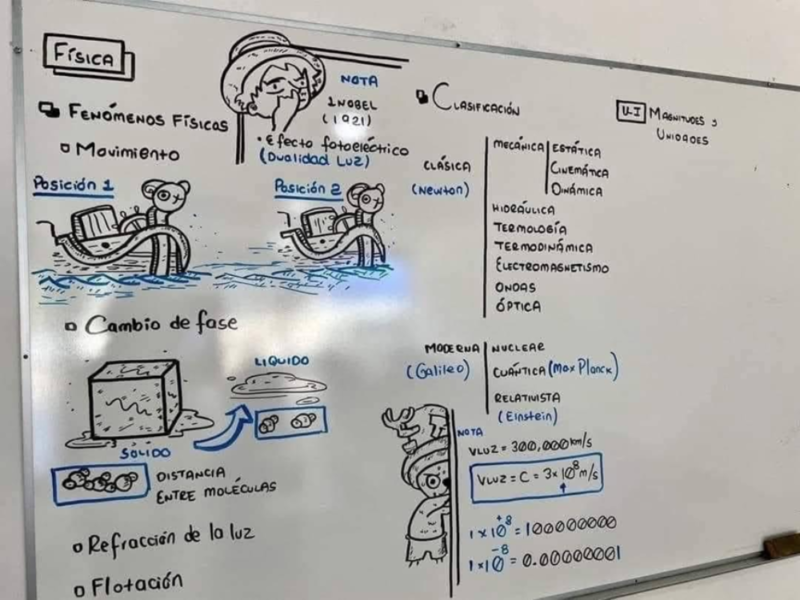 FÍSICA
FENÓMENOS FÍSICOS
Movimiento
Posición 1
Posición 2
NOTA
1 NOBEL
(1921)
• Efecto fotoeléctrico
(Dualidad Luz)
Cambio de fase
LIQUIDO
SÓLIDO
DISTANCIA
ENTRE MOLÉCULAS
Refracción de la luz
Flotación
CLASIFICACIÓN
CLÁSICA
(Newton)
MECÁNICA
ESTÁTICA
CINEMÁTICA
DINÁMICA
HIDRÁULICA
TERMOLOGÍA
TERMODINÁMICA
ELECTROMAGNETISMO
ONDAS
ÓPTICA
MODERNA
(Galileo)
NUCLEAR
CUÁNTICA (Max Planck)
RELATIVISTA
(Einstein)
NOTA
VLUZ = 300,000 km/s
VLUZ = C = 3×10⁸ m/s
1×10⁺⁸ = 100000000
1×10⁻⁸ = 0.00000001
U-I MAGNITUDES y
UNIDADES